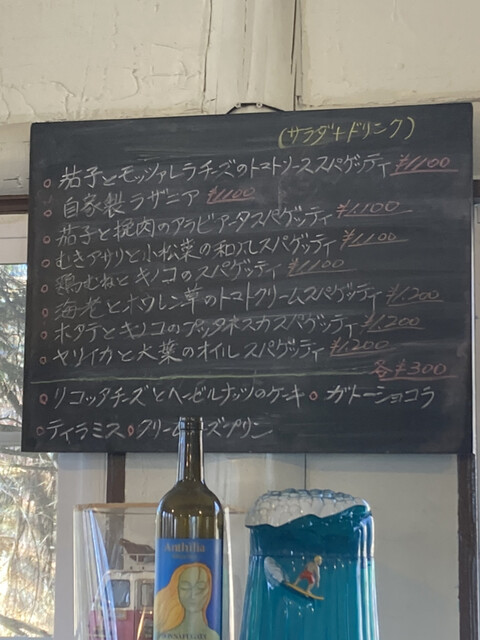 (サラダ+ドリンク)
茄子とモッツァレラチーズのトマトソーススパゲッティ ¥1100
自家製ラザニア ¥1100
茄子と挽肉のアラビアータスパゲッティ ¥1,100
むきアサリと小松菜の和風スパゲッティ ¥1100
鶏むねとキノコのスパゲッティ ¥1100
海老とホウレン草のトマトクリームスパゲッティ ¥1,200
ホタテとキノコのプッタネスカスパゲッティ ¥1,200
ヤリイカと大葉のオイルスパゲッティ ¥1,200
各¥300
リコッタチーズとヘーゼルナッツのケーキ ガトーショコラ
ティラミス クリームチーズプリン
Anthìlia
DONNAFUGATA